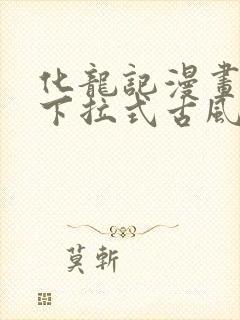 化龍記漫畫
下拉式古風
莫斬